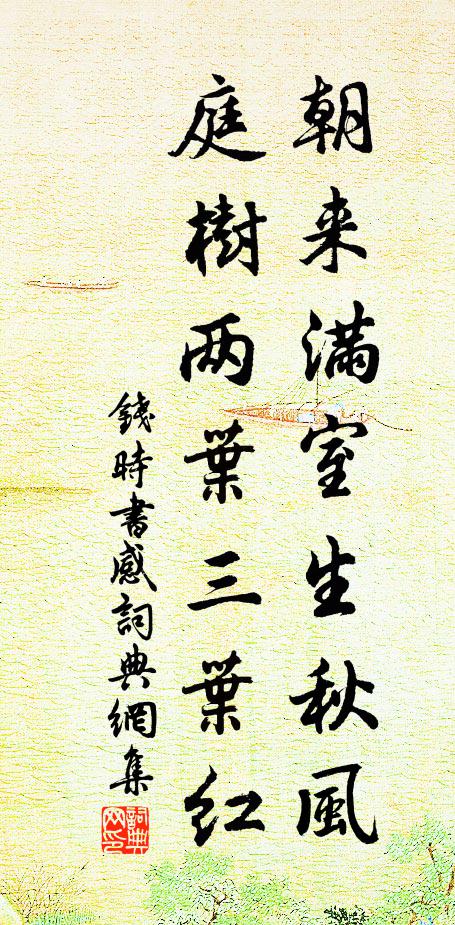 朝来滿室生秋風
庭樹两葉三葉红
錢時書感詞典網集
詞典网印